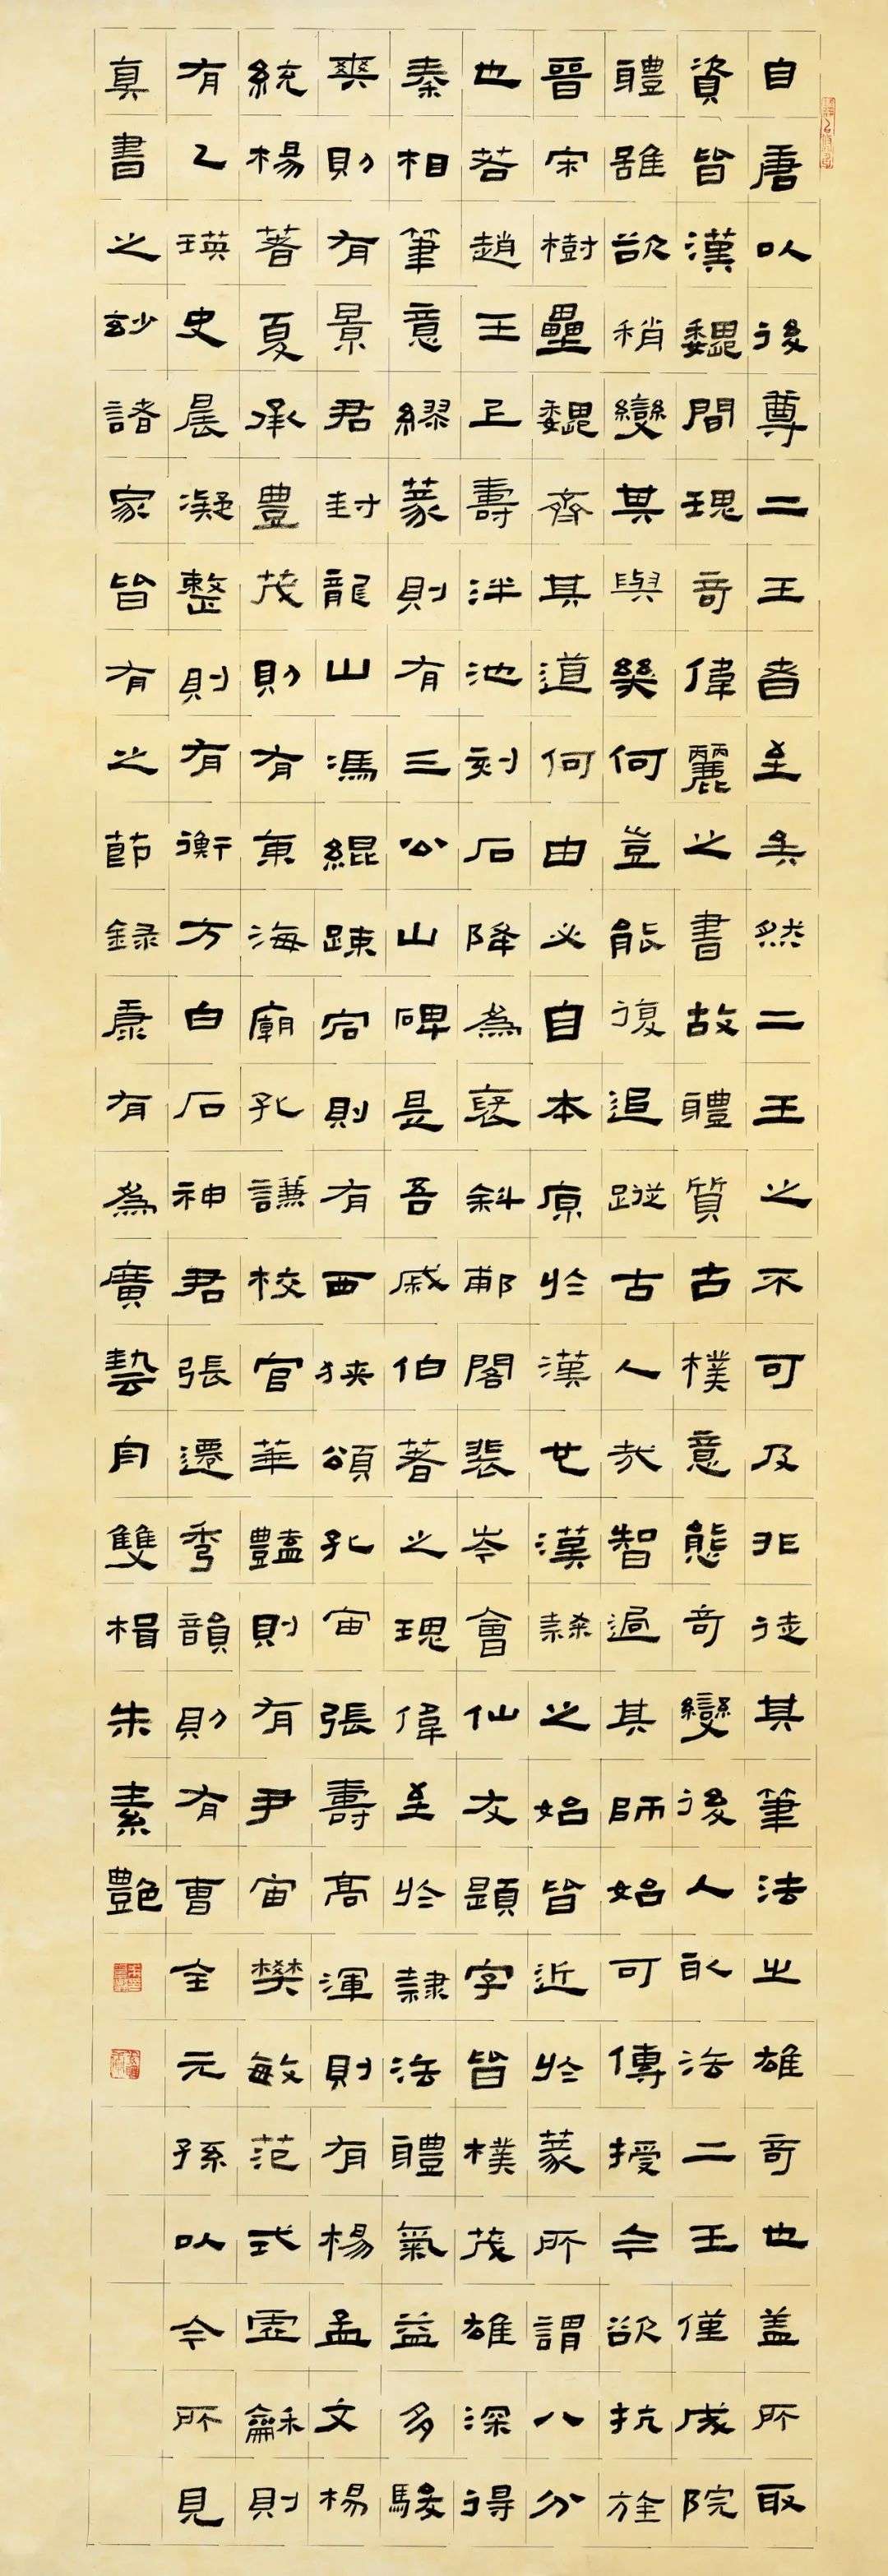 自唐以後尊二王者至矣然二王之不可及非徒其筆法之雄奇也蓋所取
資皆漢魏間瑰奇偉麗之書故體質古樸意態奇變後人取法二王僅成院
體雖欲稍變其與幾何豈能復追蹤古人哉智過其師始可傳授今欲抗旌
晉宋樹壘魏齊其道何由必自本原於漢世漢隸之始皆近於篆所謂八分
也若趙王正壽泮池刻石降為褒斜郙閣裴岑會仙友題字皆樸茂雄深得
秦相筆意繆篆則有三公山碑是吾戚伯著之瑰偉至於隸法體氣益多駿
爽則有景君封龍山馮緄疎宕則有西狹頌孔宙張壽高渾則有楊孟文楊
統楊著夏承豐茂則有東海廟孔謙校官華豔則有尹宙樊敏范式虛龢則
有乙瑛史晨凝整則有衡方白石神君張遷秀韻則有曹全元孫以今所見
真書之妙諸家皆有之節錄康有為廣藝舟雙楫朱素艷